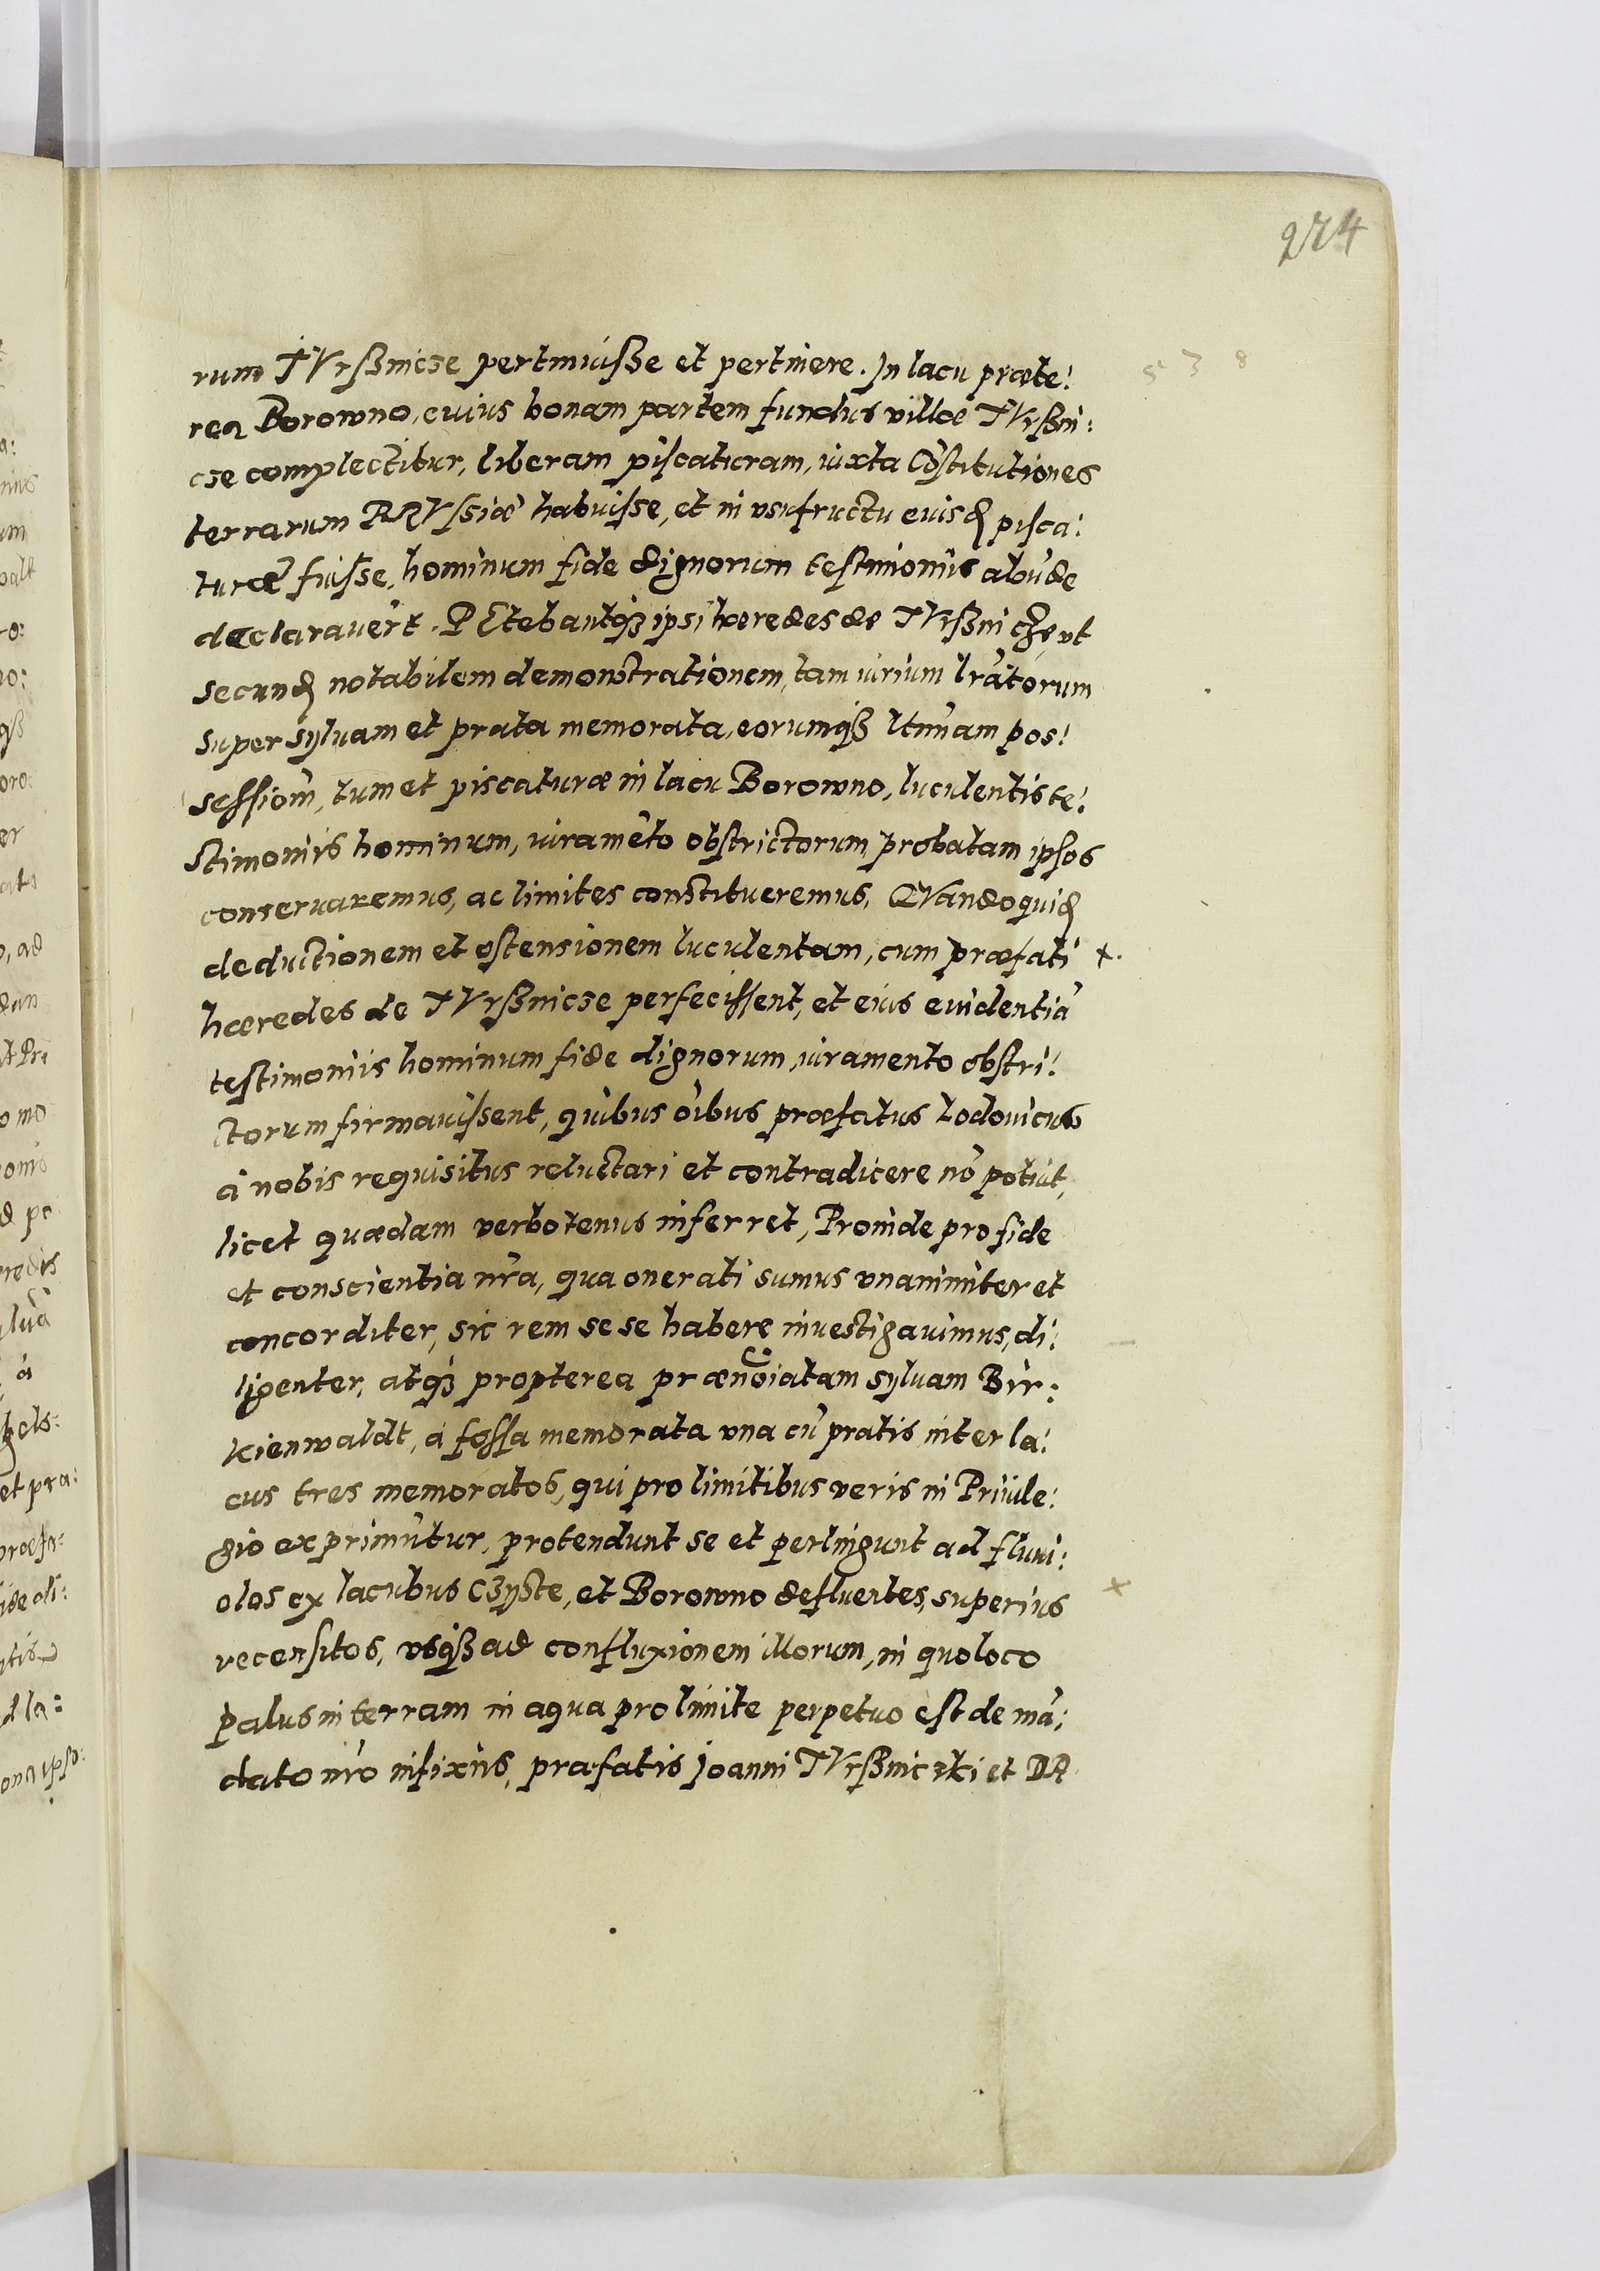 274
rum TVrßnicze pertinuiße et pertinere. In lacu præte:
rea Borowno, cuius bonam partem fundus villæ TVrßni:
cze complectitur, liberam piscaturam, iuxta Cõstitutiones
terrarum PRVssiæ habuisse, et in vsufructu euisđ pisca:
turæ fuisse, hominum fide dignorum testimoniis abũde
declarauer̃t. PEtebantqꝫ ipsi hæredes de TVrßnicze, vt
secunđ notabilem demonstrationem, tam iurium lr̃atorum
super syluam et prata memorata, eorumqꝫ ltim̃am pos:
sessiom̃, tum et piscaturæ in lacu Borowno, luculentis te:
stimoniis hominum, iuramẽto obstrictorum, probatam ipsos
conseruaremus, ac limites constitueremus, QVandoquiđ
deductionem et ostensionem luculentam, cum præfati +.
hæredes de TVrßnicze perfecissent, et eius euidentiã
testimoniis hominum fide dignorum, iuramento obstri:
ctorum firmauissent, quibus oĩbus præfatus Lodouicus
à nobis requisitus reluctari et contradicere nõ potuit,
licet quædam verbotenus inferret, Proinde pro fide
et conscientia nr̃a, qua onerati sumus vnanimiter et
concorditer, sic rem sese habere inuestigauimus, di:
ligenter, atqꝫ propterea prænoĩatam syluam Bir:
kienwaldt, à fossa memorata vna cũ pratis inter la:
cus tres memoratos, qui pro limitibus veris in Priuile:
gio exprimũtur, protendunt se et pertingunt ad fluui:
olos ex lacubus Czyste, et Borowno defluentes, superius +
recensitos, vsqꝫ ad confluxionem illorum, in quo loco
palus in terram in aqua pro limite perpetuo est de mã:
dato nr̃o infixus, præfatis Joanni TVrßniczki et DA